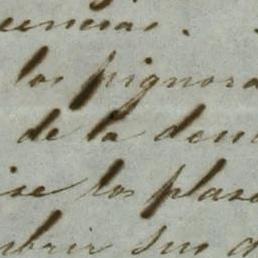 cencias.
los pignora
de la deu
se los plaso
ubrir sus d